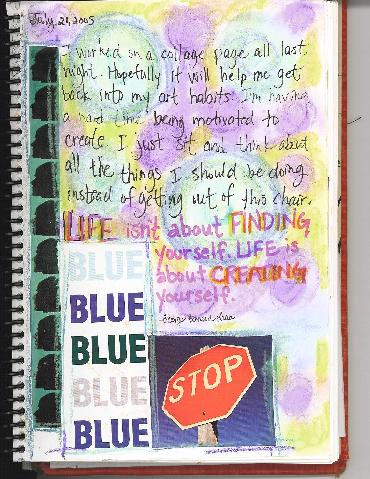 July, 21, 2005
I worked on a collage page all last
night. Hopefully it will help me get
back into my art habits. I'm having
a hard time being motivated to
create I just sit and think about
all the things I should be doing
instead of getting out of this chair.
LIFE isn't about FINDING
yourself. LIFE is
about CREATING
yourself.
George Bernard Shaw
BLUE
BLUE
BLUE
BLUE
BLUE
STOP